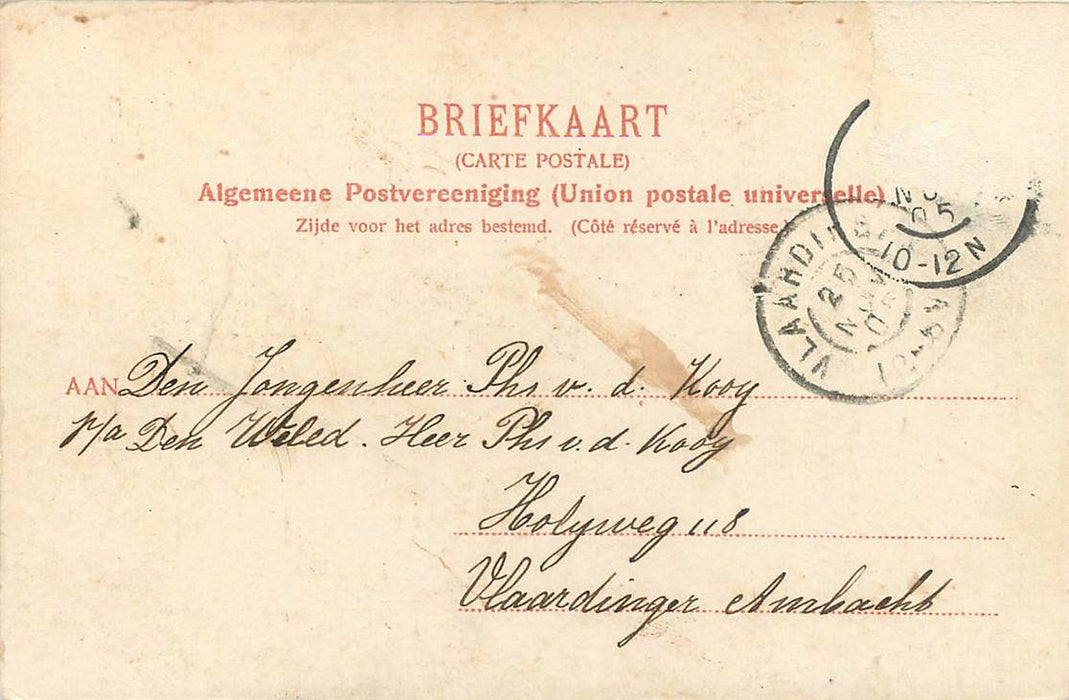 BRIEFKAART
(CARTE POSTALE)
Algemeene Postvereeniging (Union postale universelle)
Zijde voor het adres bestemd. (Côté réservé à l'adresse.)
05
10-12N
VLAARDIN
25
AAN Den Jongenheer Phs v. d. Kooy
p/a Den WelEd. Heer Phs v. d. Kooy
Holyweg 118
Vlaardinger Ambacht